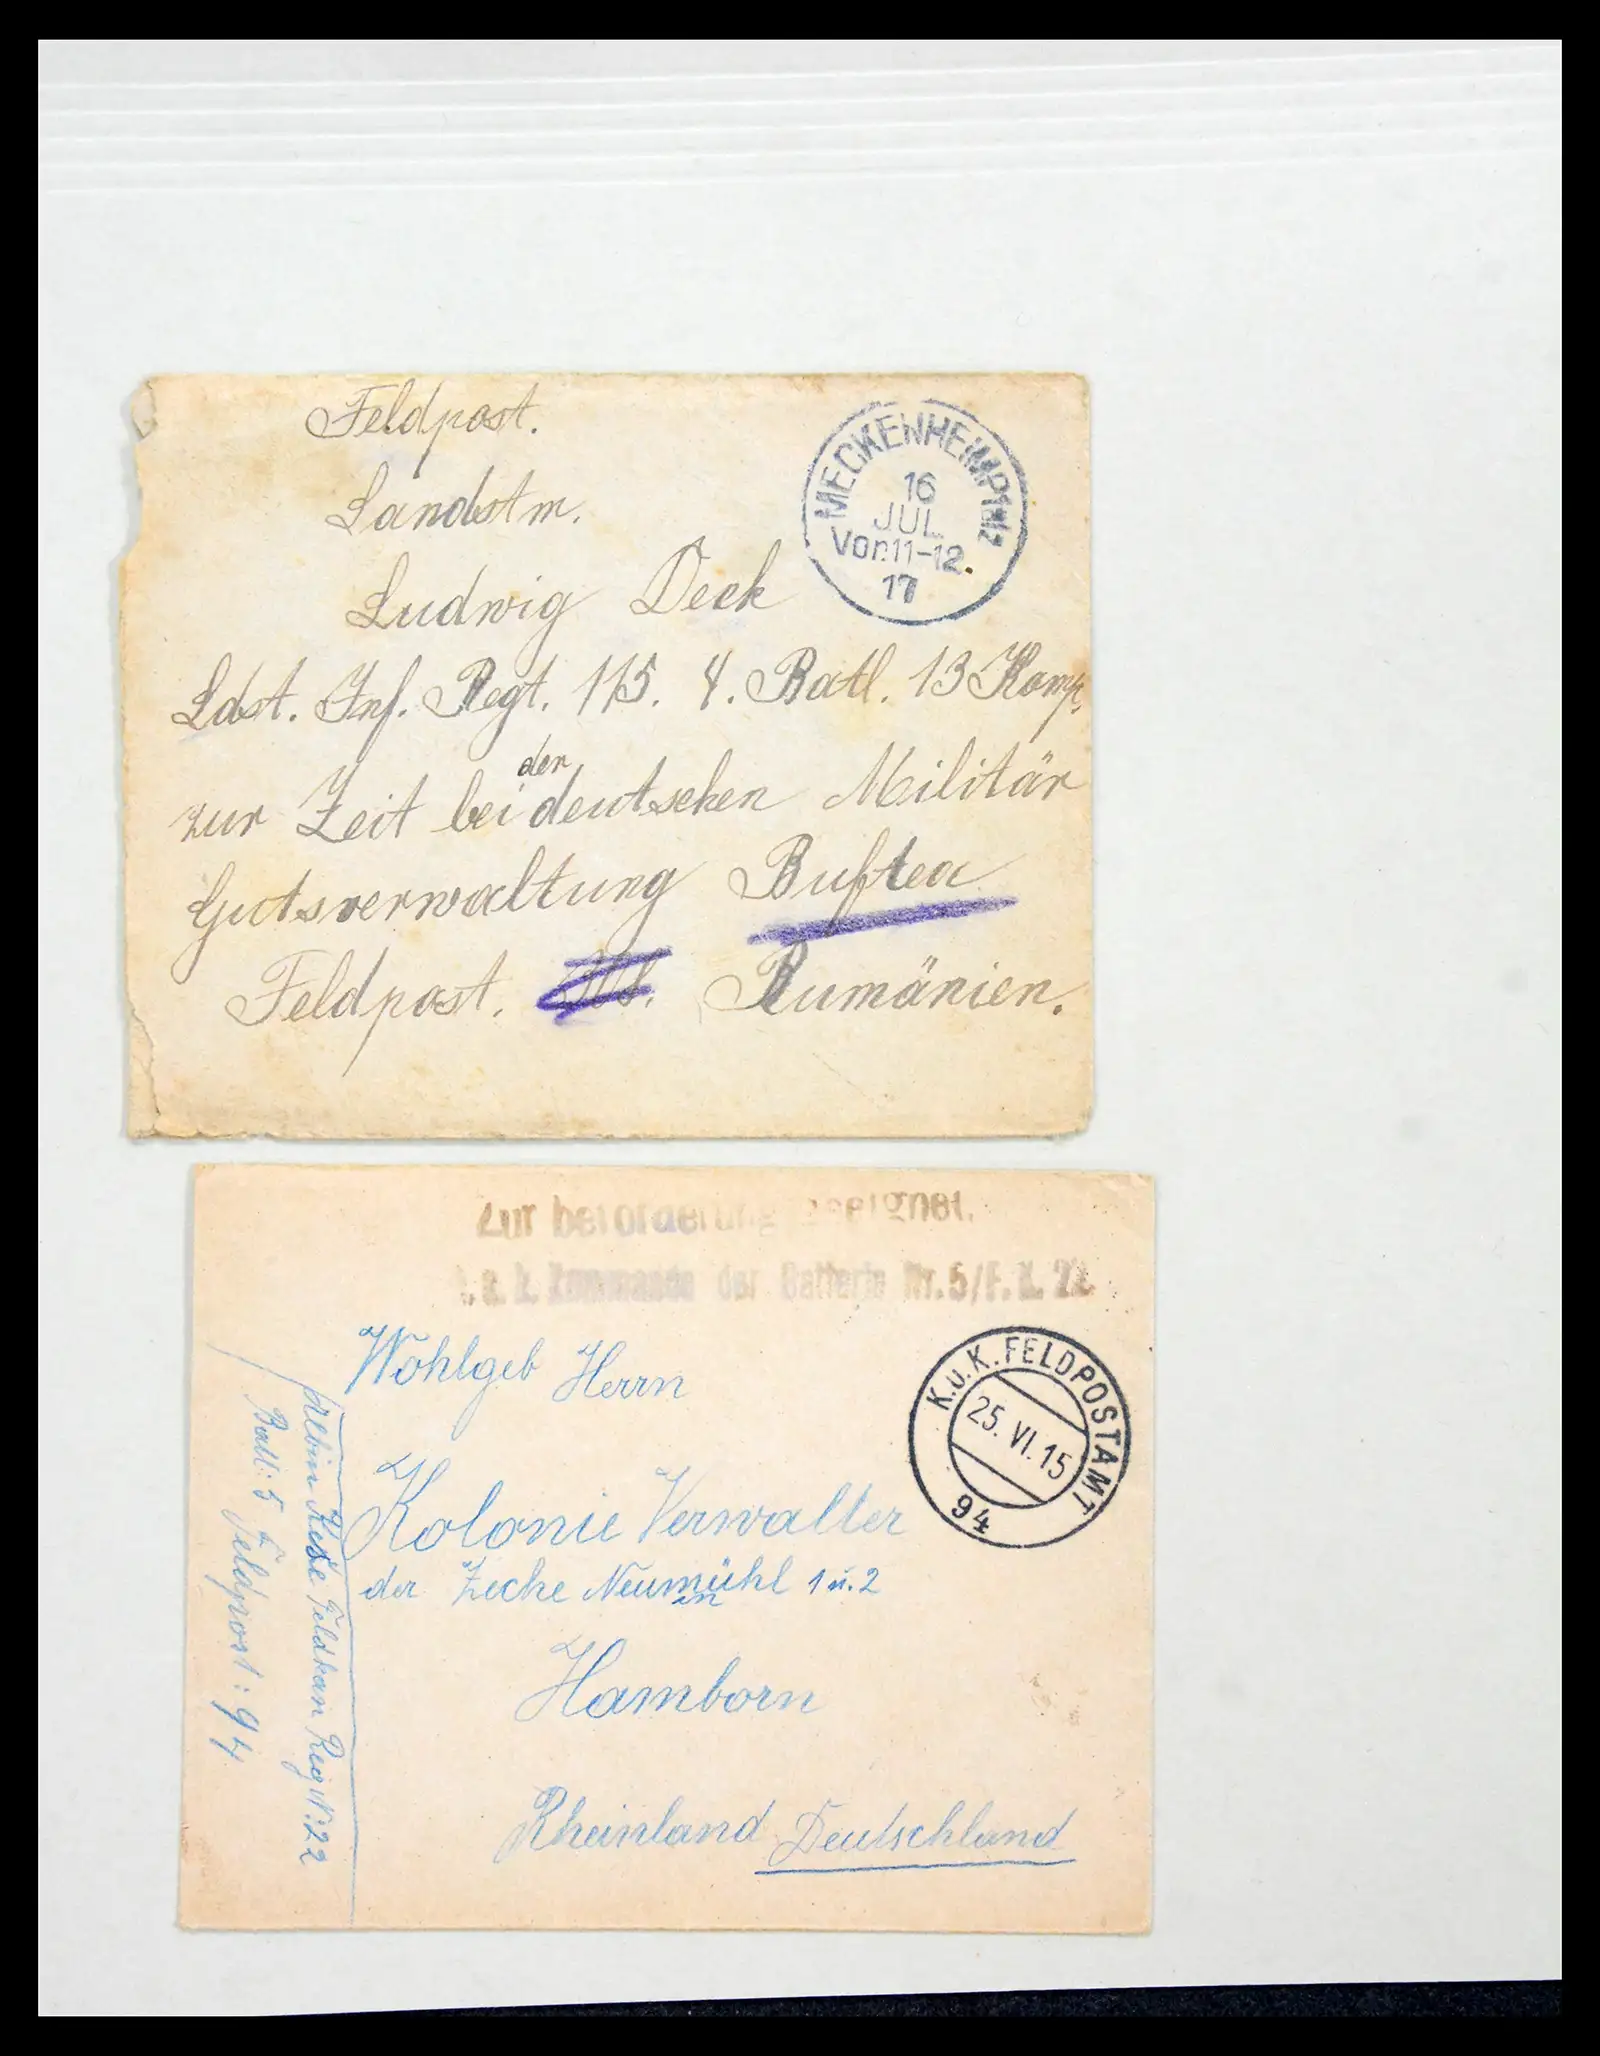 Feldpost.
MECKENHEIM PFALZ
16
JUL
Vor. 11-12.
17
Landstm.
Ludwig Deck
Ldst. Inf. Regt. 115. 4. Batl. 13 Komp.
zur Zeit bei der deutschen Militär
Gutsverwaltung Buftea
Feldpost. Rumänien.
Zur beforderung geeignet.
k. u. k. Kommando der Batterie Nr. 5/F. K. 22.
K.u.K. FELDPOSTAMT
25. VI. 15
94
Wohlgeb Herrn
Kolonie Verwalter
der Zeche Neumühl 1 u. 2
in
Hamborn
Rheinland Deutschland
Albin Feldkan Reg N: 22
Batt: 5
Feldpost: 94